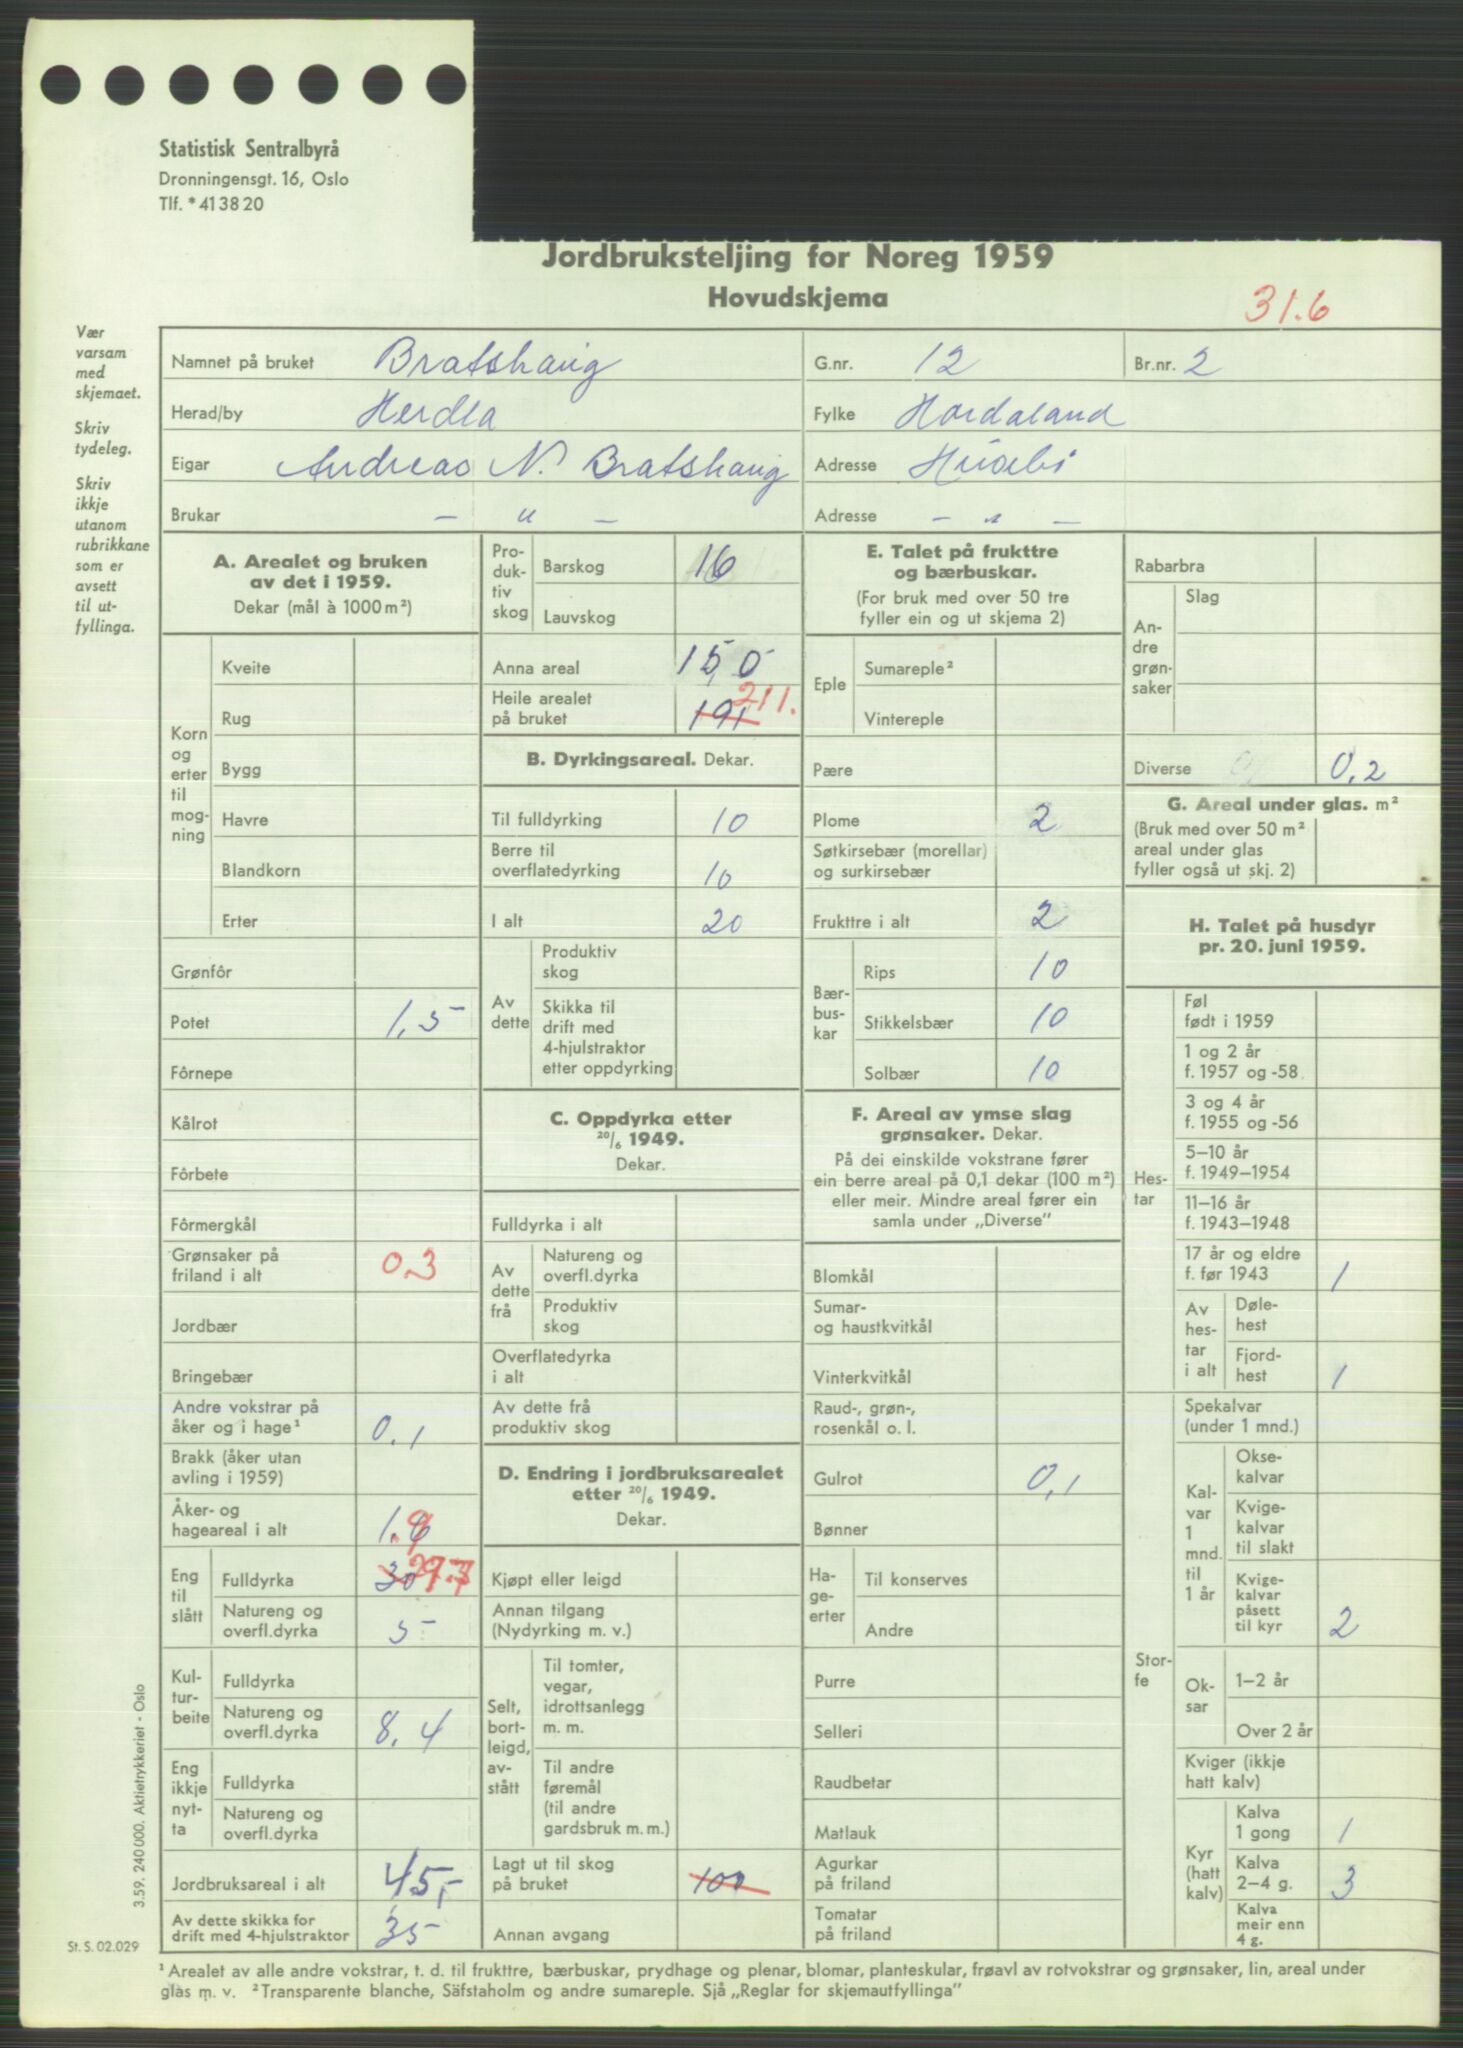 Statistisk Sentralbyrå
Dronningensgt. 16, Oslo
Tlf. * 41 38 20
Jordbruksteljing for Noreg 1959
Hovudskjema
31.6
Vær
varsam
med
skjemaet.
Skriv
tydeleg.
Skriv
ikkje
utanom
rubrikkane
som er
avsett
til ut-
fyllinga.
Namnet på bruket Bratshaug G.nr. 12 Br.nr. 2
Herad/by Herdla Fylke Hordaland
Eigar Andreas N. Bratshaug Adresse
Brukar – " – Adresse – " –
A. Arealet og bruken
av det i 1959.
Dekar (mål à 1000 m²)
Korn
og
erter
til
mog-
ning
Kveite
Rug
Bygg
Havre
Blandkorn
Erter
Grønfôr
Potet 1,5
Fôrnepe
Kålrot
Fôrbete
Fôrmergkål
Grønsaker på
friland i alt 0.3
Jordbær
Bringebær
Andre vokstrar på
åker og i hage¹ 0,1
Brakk (åker utan
avling i 1959)
Åker- og
hageareal i alt 1.9
Eng
til
slått
Fulldyrka 30 29.7
Natureng og
overfl.dyrka 5
Kul-
tur-
beite
Fulldyrka
Natureng og
overfl.dyrka 8,4
Eng
ikkje
nyt-
ta
Fulldyrka
Natureng og
overfl.dyrka
Jordbruksareal i alt 45,-
Av dette skikka for
drift med 4-hjulstraktor 35
Pro-
duk-
tiv
skog
Barskog 16
Lauvskog
Anna areal 150
Heile arealet
på bruket 191 211.
B. Dyrkingsareal. Dekar.
Til fulldyrking 10
Berre til
overflatedyrking 10
I alt 20
Av
dette
Produktiv
skog
Skikka til
drift med
4-hjulstraktor
etter oppdyrking
C. Oppdyrka etter
20/6 1949.
Dekar.
Fulldyrka i alt
Av
dette
frå
Natureng og
overfl.dyrka
Produktiv
skog
Overflatedyrka
i alt
Av dette frå
produktiv skog
D. Endring i jordbruksarealet
etter 20/6 1949.
Dekar.
Kjøpt eller leigd
Annan tilgang
(Nydyrking m. v.)
Selt,
bort-
leigd,
av-
stått
Til tomter,
vegar,
idrottsanlegg
m. m.
Til andre
føremål
(til andre
gardsbruk m. m.)
Lagt ut til skog
på bruket 100
Annan avgang
E. Talet på frukttre
og bærbuskar.
(For bruk med over 50 tre
fyller ein og ut skjema 2)
Eple
Sumareple²
Vintereple
Pære
Plome 2
Søtkirsebær (morellar)
og surkirsebær
Frukttre i alt 2
Bær-
bus-
kar
Rips 10
Stikkelsbær 10
Solbær 10
F. Areal av ymse slag
grønsaker. Dekar.
På dei einskilde vokstrane fører
ein berre areal på 0,1 dekar (100 m²)
eller meir. Mindre areal fører ein
samla under „Diverse”
Blomkål
Sumar-
og haustkvitkål
Vinterkvitkål
Raud-, grøn-,
rosenkål o. l.
Gulrot 0,1
Bønner
Ha-
ge-
erter
Til konserves
Andre
Purre
Selleri
Raudbetar
Matlauk
Agurkar
på friland
Tomatar
på friland
Rabarbra
An-
dre
grøn-
saker
Slag
Diverse 0,2
G. Areal under glas. m²
(Bruk med over 50 m²
areal under glas
fyller også ut skj. 2)
H. Talet på husdyr
pr. 20. juni 1959.
Hes-
tar
Føl
født i 1959
1 og 2 år
f. 1957 og -58
3 og 4 år
f. 1955 og -56
5–10 år
f. 1949–1954
11–16 år
f. 1943–1948
17 år og eldre
f. før 1943 1
Av
hes-
tar
i alt
Døle-
hest
Fjord-
hest 1
Stor-
fe
Spekalvar
(under 1 mnd.)
Kal-
var
1
mnd.
til
1 år
Okse-
kalvar
Kvige-
kalvar
til slakt
Kvige-
kalvar
påsett
til kyr 2
Ok-
sar
1–2 år
Over 2 år
Kviger (ikkje
hatt kalv)
Kyr
(hatt
kalv)
Kalva
1 gong 1
Kalva
2–4 g. 3
Kalva
meir enn
4 g.
3.59. 240 000. Aktietrykkeriet - Oslo
St. S. 02.029
¹ Arealet av alle andre vokstrar, t. d. til frukttre, bærbuskar, prydhage og plenar, blomar, planteskular, frøavl av rotvokstrar og grønsaker, lin, areal under
glas m. v. ² Transparente blanche, Säfstaholm og andre sumareple. Sjå „Reglar for skjemautfyllinga”